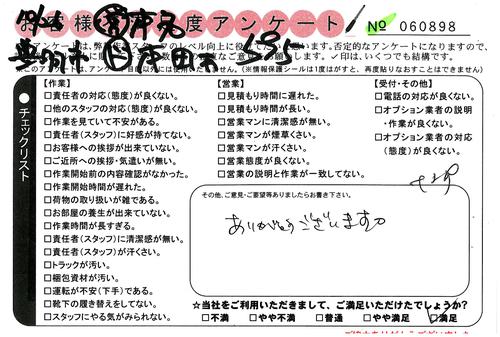 お客様満足度アンケート
№ 060898
✓印は、いくつでも結構です。
チェックリスト
【作業】
□責任者の対応(態度)が良くない。
□他のスタッフの対応(態度)が良くない。
□作業を見ていて不安がある。
□責任者(スタッフ)に好感が持てない。
□お客様への挨拶が出来ていない。
□ご近所への挨拶・気遣いが無い。
□作業開始前の内容確認がなかった。
□作業開始時間が遅れた。
□荷物の取り扱いが雑である。
□お部屋の養生が出来ていない。
□作業時間が長すぎる。
□責任者(スタッフ)に清潔感が無い。
□責任者(スタッフ)が汗くさい。
□トラックが汚い。
□梱包資材が汚い。
□運転が不安(下手)である。
□靴下の履き替えをしてない。
□スタッフにやる気がみられない。
【営業】
□見積もり時間に遅れた。
□見積もり時間が長い。
□営業マンに清潔感が無い。
□営業マンが煙草くさい。
□営業マンが汗くさい。
□営業態度が良くない。
□営業の説明と作業が一致してない。
【受付・その他】
□電話の対応が良くない。
□オプション業者の説明・作業が良くない。
□オプション業者の対応(態度)が良くない。
その他、ご意見・ご要望等ありましたらお書き下さい。
ありがとうございます。
☆当社をご利用いただきまして、ご満足いただけたでしょうか?
□不満 □やや不満 □普通 □やや満足 □満足